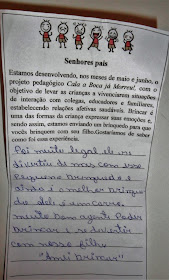 Senhores pais
Estamos desenvolvendo, nos meses de maio e junho, o
projeto pedagógico Cala a Boca já Morreu!, com o
objetivo de levar as crianças a vivenciarem situações
de interação com colegas, educadores e familiares,
estabelecendo relações afetivas saudáveis. Brincar é
uma das formas da criança expressar suas emoções e,
sendo assim, estamos enviando um brinquedo para que
vocês brinquem com seu filho. Gostaríamos de saber
como foi essa experiência.
Foi muito legal ele se
divertiu de mas com esse
pequeno brinquedo e
ainda é o melhor brinque
do dele é um carro.
muito bom agente Poder
brincar e se divertir
com nosso filho
"Amei brincar"